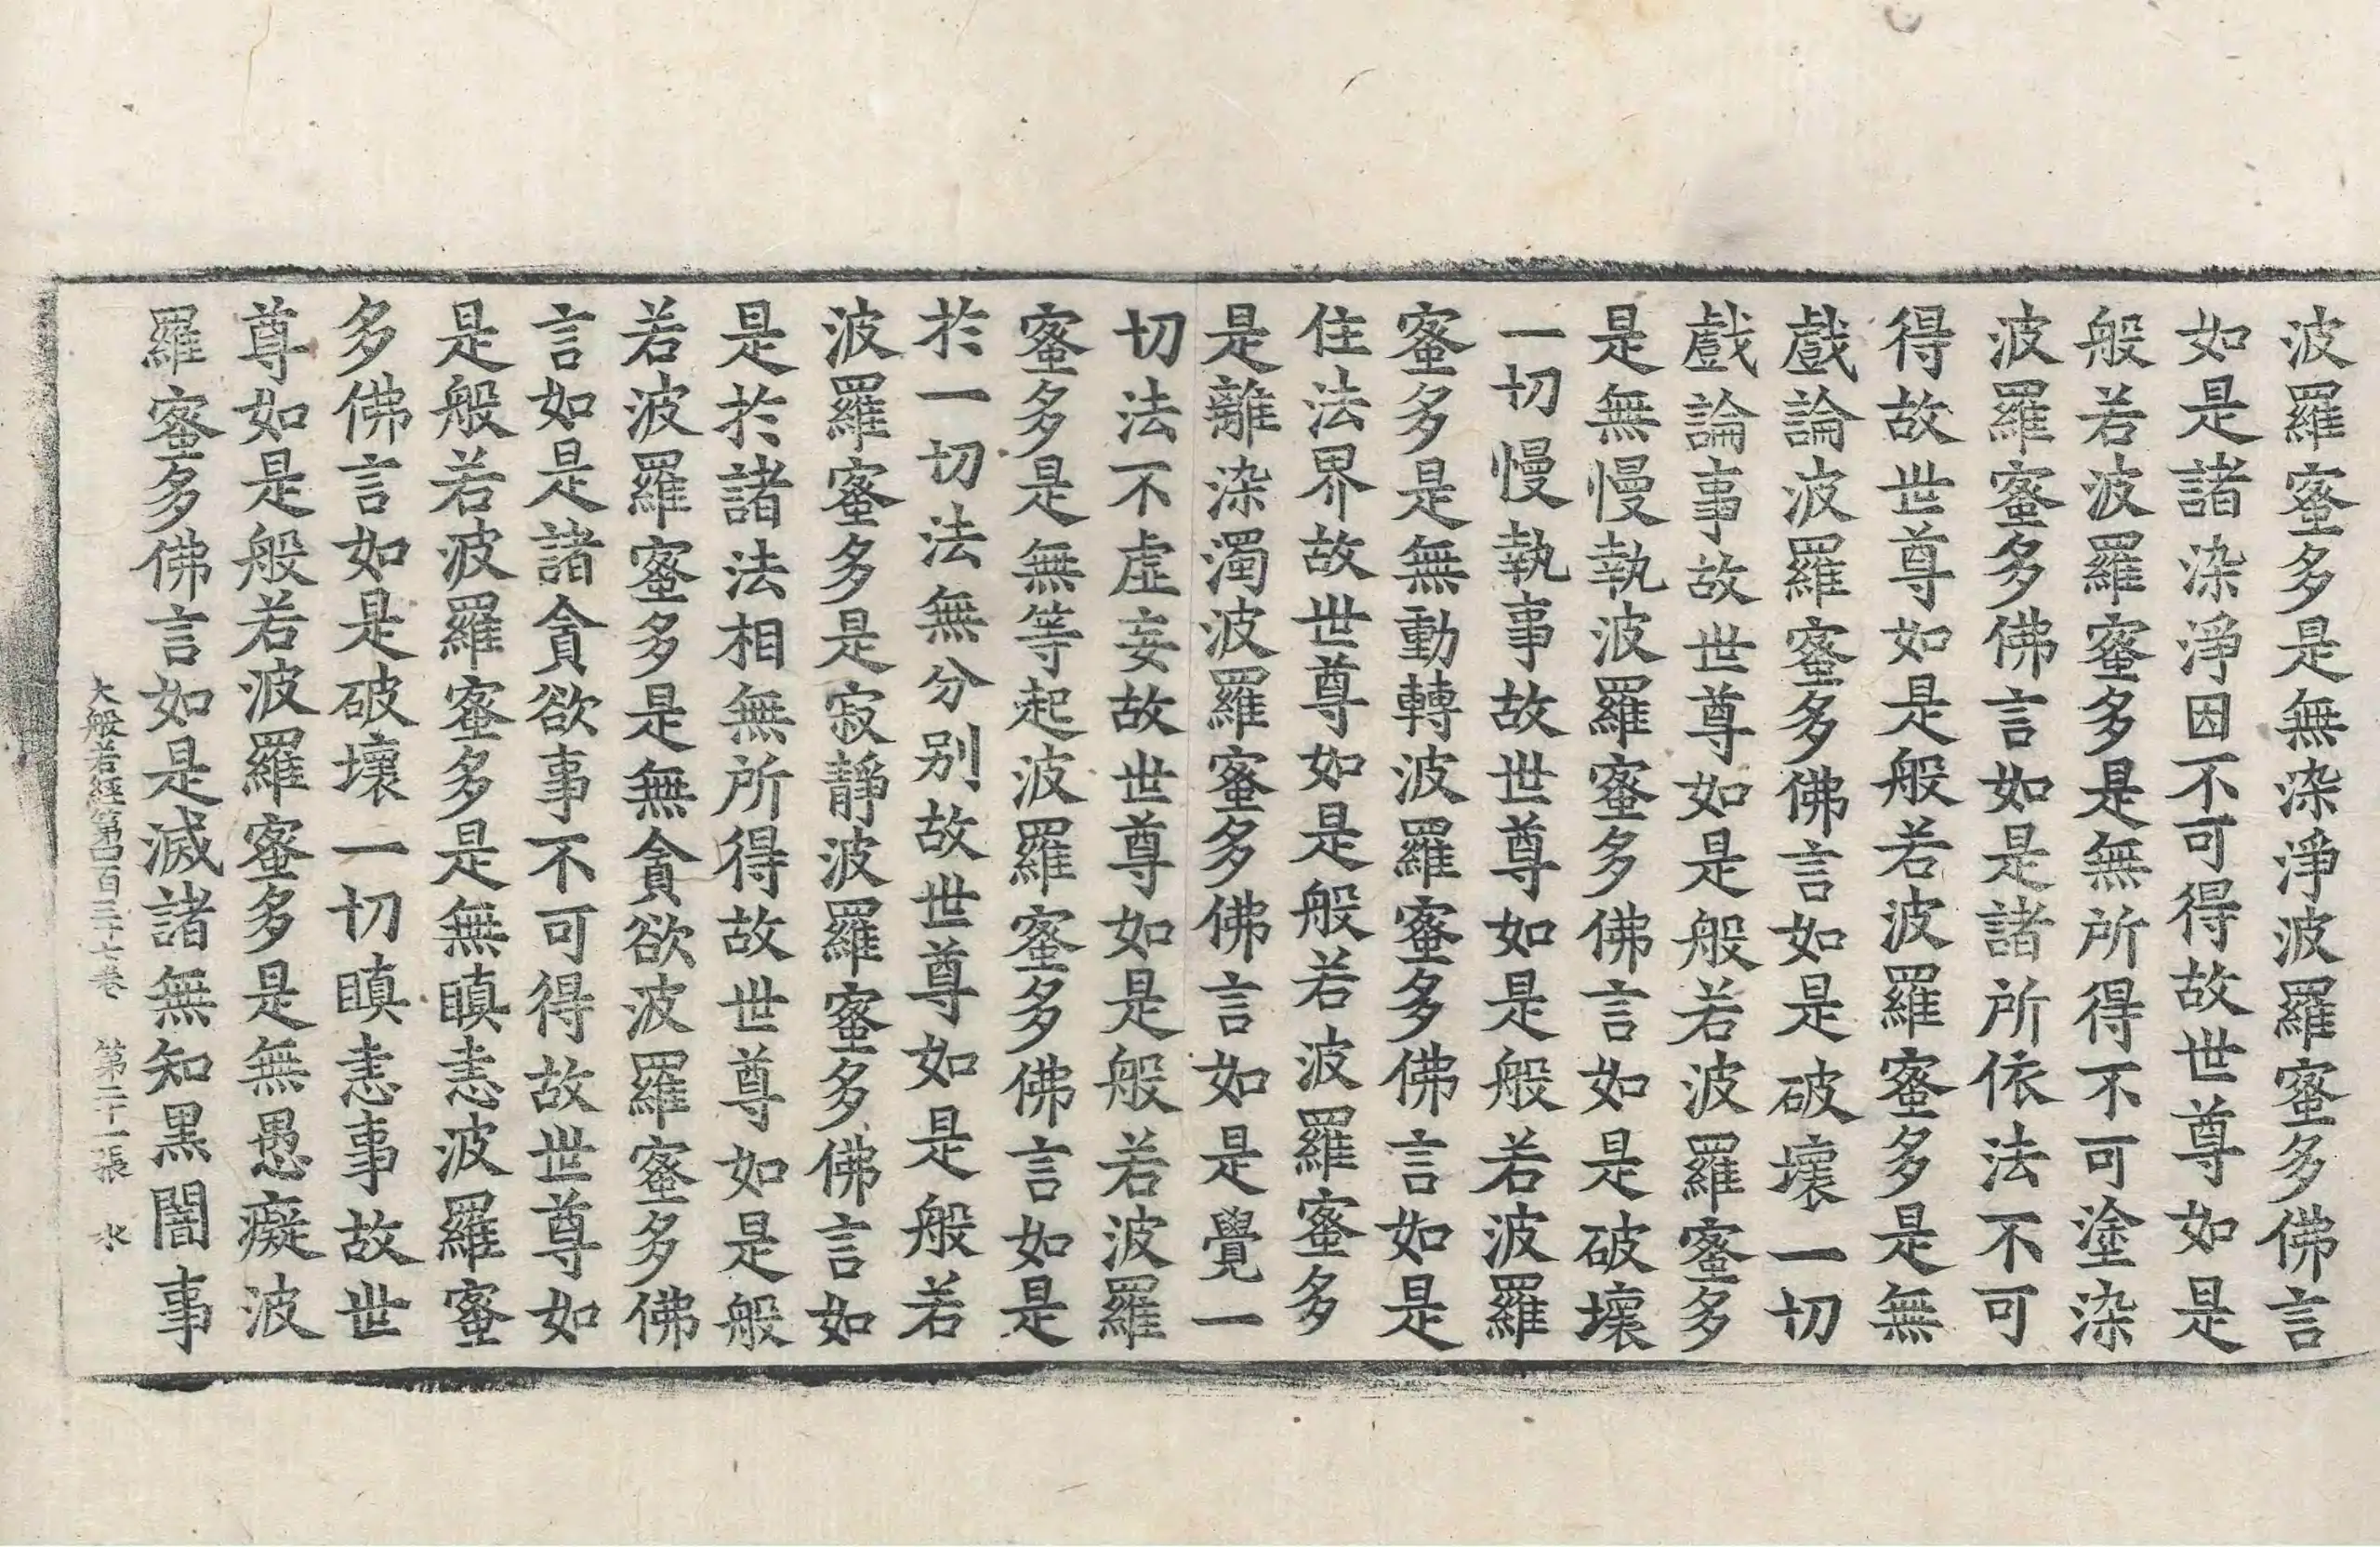 波羅蜜多是無染淨波羅蜜多佛言
如是諸染淨因不可得故世尊如是
般若波羅蜜多是無所得不可塗染
波羅蜜多佛言如是諸所依法不可
得故世尊如是般若波羅蜜多是無
戲論波羅蜜多佛言如是破壞一切
戲論事故世尊如是般若波羅蜜多
是無慢執波羅蜜多佛言如是破壞
一切慢執事故世尊如是般若波羅
蜜多是無動轉波羅蜜多佛言如是
住法界故世尊如是般若波羅蜜多
是離染濁波羅蜜多佛言如是覺一
切法不虛妄故世尊如是般若波羅
蜜多是無等起波羅蜜多佛言如是
於一切法無分別故世尊如是般若
波羅蜜多是寂靜波羅蜜多佛言如
是於諸法相無所得故世尊如是般
若波羅蜜多是無貪欲波羅蜜多佛
言如是諸貪欲事不可得故世尊如
是般若波羅蜜多是無瞋恚波羅蜜
多佛言如是破壞一切瞋恚事故世
尊如是般若波羅蜜多是無愚癡波
羅蜜多佛言如是滅諸無知黑闇事
大般若經第四百三十七卷 第二十一張